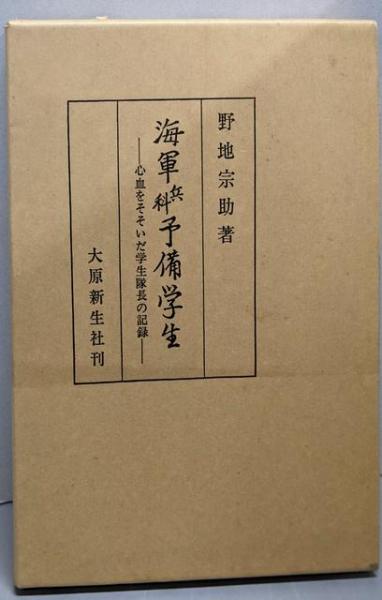 野地宗助著
海軍兵科予備学生
―心血をそそいだ学生隊長の記録―
大原新生社刊